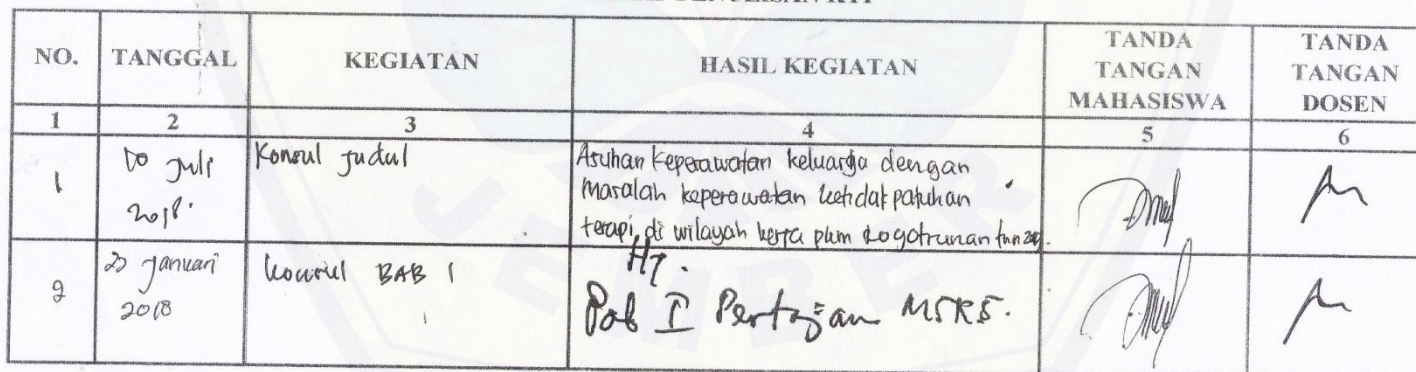 NO. TANGGAL KEGIATAN HASIL KEGIATAN TANDA TANGAN MAHASISWA TANDA TANGAN DOSEN
1 2 3 4 5 6
1 Juli 2018. Konsul Judul Asuhan keperawatan keluarga dengan
masalah keperawatan ketidakpatuhan
terapi di wilayah kerja pkm Rogotrunan
HT.
2 Januari 2018 Konsul BAB 1 Bab I
JEMBER